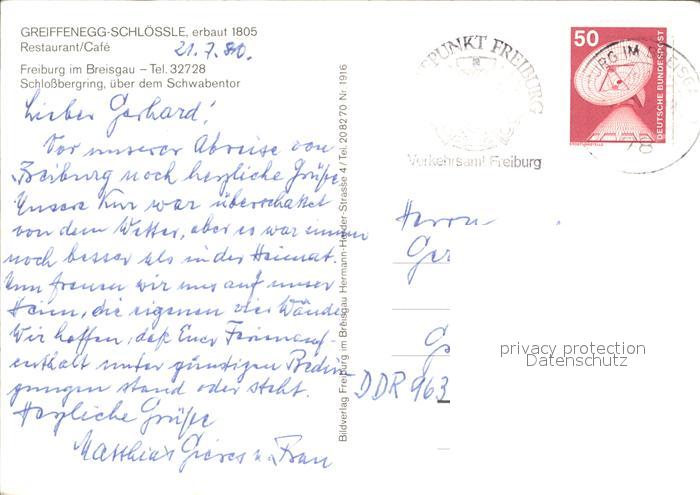 GREIFFENEGG-SCHLÖSSLE, erbaut 1805
Restaurant/Café
21.7.80.
Freiburg im Breisgau – Tel. 32728
Schloßbergring, über dem Schwabentor
Lieber Gerhard!
Vor unserer Abreise von
Freiburg noch herzliche Grüße
Unsere Kur war überschattet
von dem Wetter, aber es war immer
noch besser als in der Heimat.
Nun freuen wir uns auf unser
Heim, die eigenen vier Wände
Wir hoffen, daß Euer Ferienauf-
enthalt unter günstigen Bedin-
gungen stand oder steht.
Herzliche Grüße
Matthias u. Frau
Bildverlag Freiburg im Breisgau Hermann-Herder-Strasse 4 / Tel. 208270 Nr 1916
PUNKT FREIBURG
Verkehrsamt Freiburg
50
DEUTSCHE BUNDESPOST
ERDFUNKSTELLE
URG IM BREISG
78
Herrn
Ger
G
DDR 963
privacy protection
Datenschutz